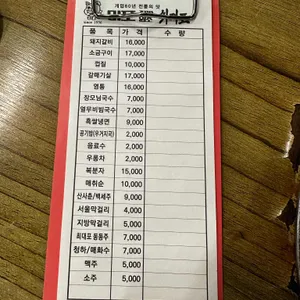 개업60년 전통의 맛
since 1956
품 목 가 격 수 량
돼지갈비 16,000
소금구이 17,000
껍질 10,000
갈매기살 17,000
염통 16,000
장모님국수 7,000
열무비빔국수 7,000
흑쌀냉면 9,000
공기밥(우거지국) 2,000
음료수 2,000
우롱차 2,000
복분자 15,000
매취순 10,000
산사춘/백세주 9,000
서울막걸리 4,000
지방막걸리 5,000
최대포 동동주 7,000
청하/매화수 7,000
맥주 5,000
소주 5,000